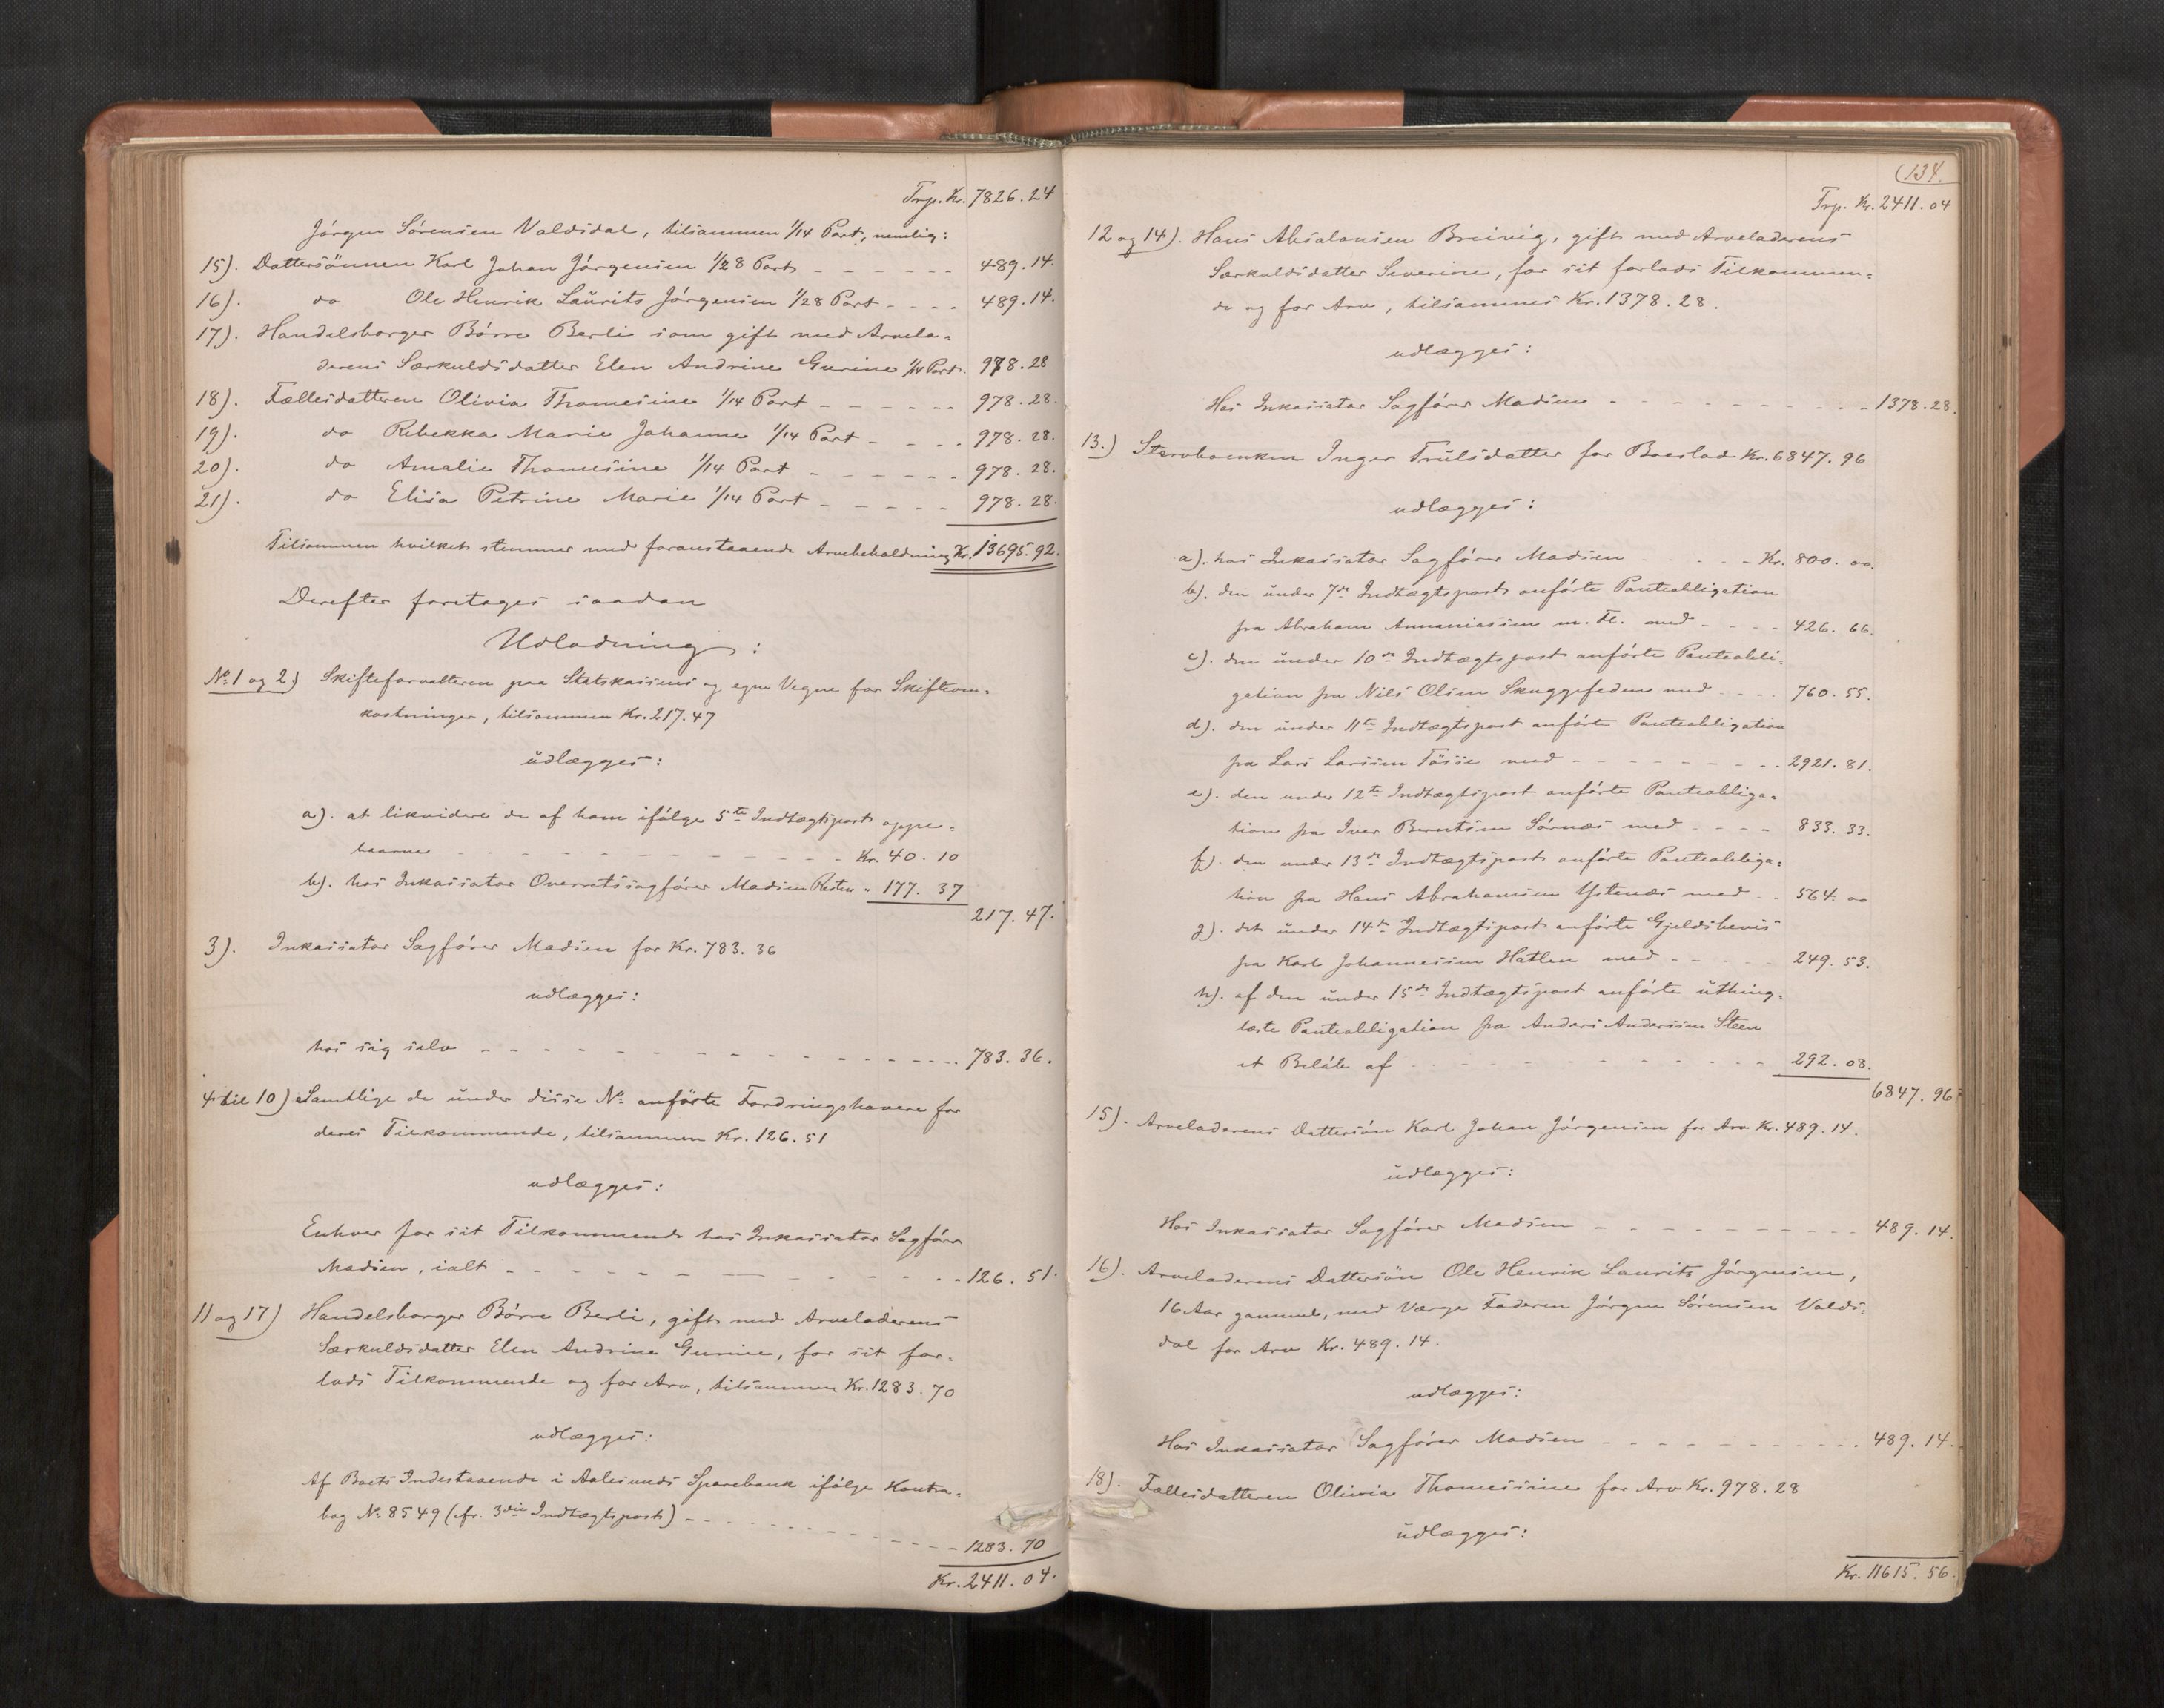 Trp. Kr. 7826.24
Jørgen Sørensen Valdsdal, tilsammen 1/14 Part, nemlig:
15). Dattersønnen Karl Johan Jørgensen 1/28 Part - - - - - - 489.14.
16). do Ole Henrik Laurits Jørgensen 1/28 Part - - - - 489.14.
17). Handelsborger Børre Berli som gift med Arvela-
derens Særkuldsdatter Elen Andrine Gurine 1/14 Part. 978.28
18). Fællesdatteren Olivia Thomesine 1/14 Part - - - - - - 978.28.
19). do Rebekka Marie Johanne 1/14 Part - - - - 978.28.
20). do Amalie Thomesine 1/14 Part - - - - - - 978.28.
21). do Elisa Petrine Marie 1/14 Part - - - - - 978.28.
Tilsammen hvilket stemmer med foranstaaende Arvebeholdning Kr. 13695.92.
Derefter foretages saadan
Udlodning:
No 1 og 2) Skifteforvalteren paa Statskassens og egne Vegne for Skifteom-
kostninger, tilsammen Kr. 217.47
udlægges:
a). at likvidere de af ham ifølge 5te Indtægtspost oppe-
baarne - - - - - - - - - - - - Kr. 40.10
b). hos Inkassator Overretssagfører Madsen Resten " 177.37
217.47.
3). Inkassator Sagfører Madsen for Kr. 783.36
udlægges:
hos sig selv - - - - - - - - - - - - - - 783.36.
4 til 10) Samtlige de under disse No anførte Fordringshavere for
deres Tilkommende, tilsammen Kr. 126.51
udlægges:
Enhver for sit Tilkommende hos Inkassator Sagfører
Madsen, ialt - - - - - - - - - - - - 126.51.
11 og 17) Handelsborger Børre Berli, gift med Arveladerens
Særkuldsdatter Elen Andrine Gurine, for sit for-
lods Tilkommende og for Arv, tilsammen Kr. 1283.70
udlægges:
Af Boets Indestaaende i Aalesunds Sparebank ifølge Kontra-
bog No 8549 (cfr. 3die Indtægtspost) - - - - - - - - - -
1283.70
Kr. 2411.04.
134.
Trp. Kr. 2411.04
12 og 14). Hans Absalonsen Breivig, gift med Arveladerens
Særkuldsdatter Severine, for sit forlods Tilkommen-
de og for Arv, tilsammes Kr. 1378.28.
udlægges:
Hos Inkassator Sagfører Madsen - - - - - - - - - - 1378.28.
13.) Stervboenken Inger Trulsdatter for Boeslod Kr. 6847.96
udlægges:
a). hos Inkassator Sagfører Madsen - - - - - Kr. 800.00.
b). den under 7de Indtægtspost anførte Panteobligation
fra Abraham Annaniassen m. Fl. med - - - - 426.66.
c). den under 10de Indtægtspost anførte Panteobli-
gation fra Nils Olsen Skuggefeden med - - - 760.55.
d). den under 11te Indtægtspost anførte Panteobligation
fra Lars Larssen Tøsse med - - - - - - - - - 2921.81.
e). den under 12te Indtægtspost anførte Panteobliga-
tion fra Iver Berntsen Sørnæs med - - - - 833.33.
f). den under 13de Indtægtspost anførte Panteobliga-
tion fra Hans Abrahamsen Ystenæs med - - 564.00
g). det under 14de Indtægtspost anførte Gjeldsbevis
fra Karl Johannessen Hatlen med - - - - - 249.53.
h). af den under 15de Indtægtspost anførte uthing-
læste Panteobligation fra Anders Anderssen Steen
et Beløb af - - - - - - - - - - - 292.08.
6847.96.
15). Arveladerens Dattersøn Karl Johan Jørgensen for Arv Kr. 489.14.
udlægges:
Hos Inkassator Sagfører Madsen - - - - - - - - - - 489.14.
16). Arveladerens Dattersøn Ole Henrik Laurits Jørgensen,
16 Aar gammel, med Værge Faderen Jørgen Sørensen Valds-
dal for Arv Kr. 489.14.
udlægges:
Hos Inkassator Sagfører Madsen - - - - - - - - - - 489.14.
18). Fællesdatteren Olivia Thomessine for Arv Kr. 978.28
udlægges:
Kr. 11615.56.